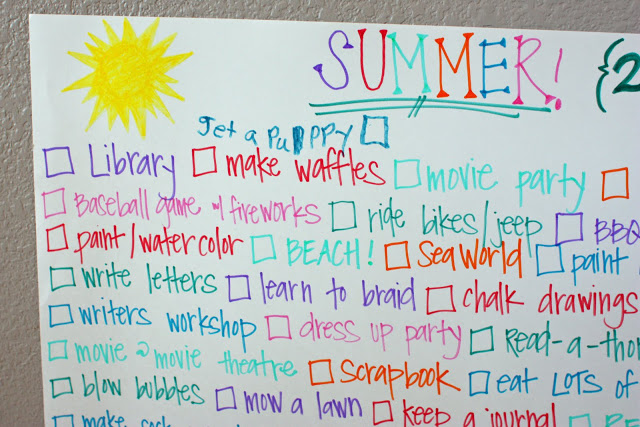 SUMMER! {2
Jet a Pupppy
Library make waffles movie party
Baseball game w/ fireworks ride bikes/jeep BBQ
paint/watercolor BEACH! Sea World paint
write letters learn to braid chalk drawings
writers workshop dress up party Read-a-tho
movie @ movie theatre Scrapbook eat LOTS of
blow bubbles mow a lawn keep a journal
make